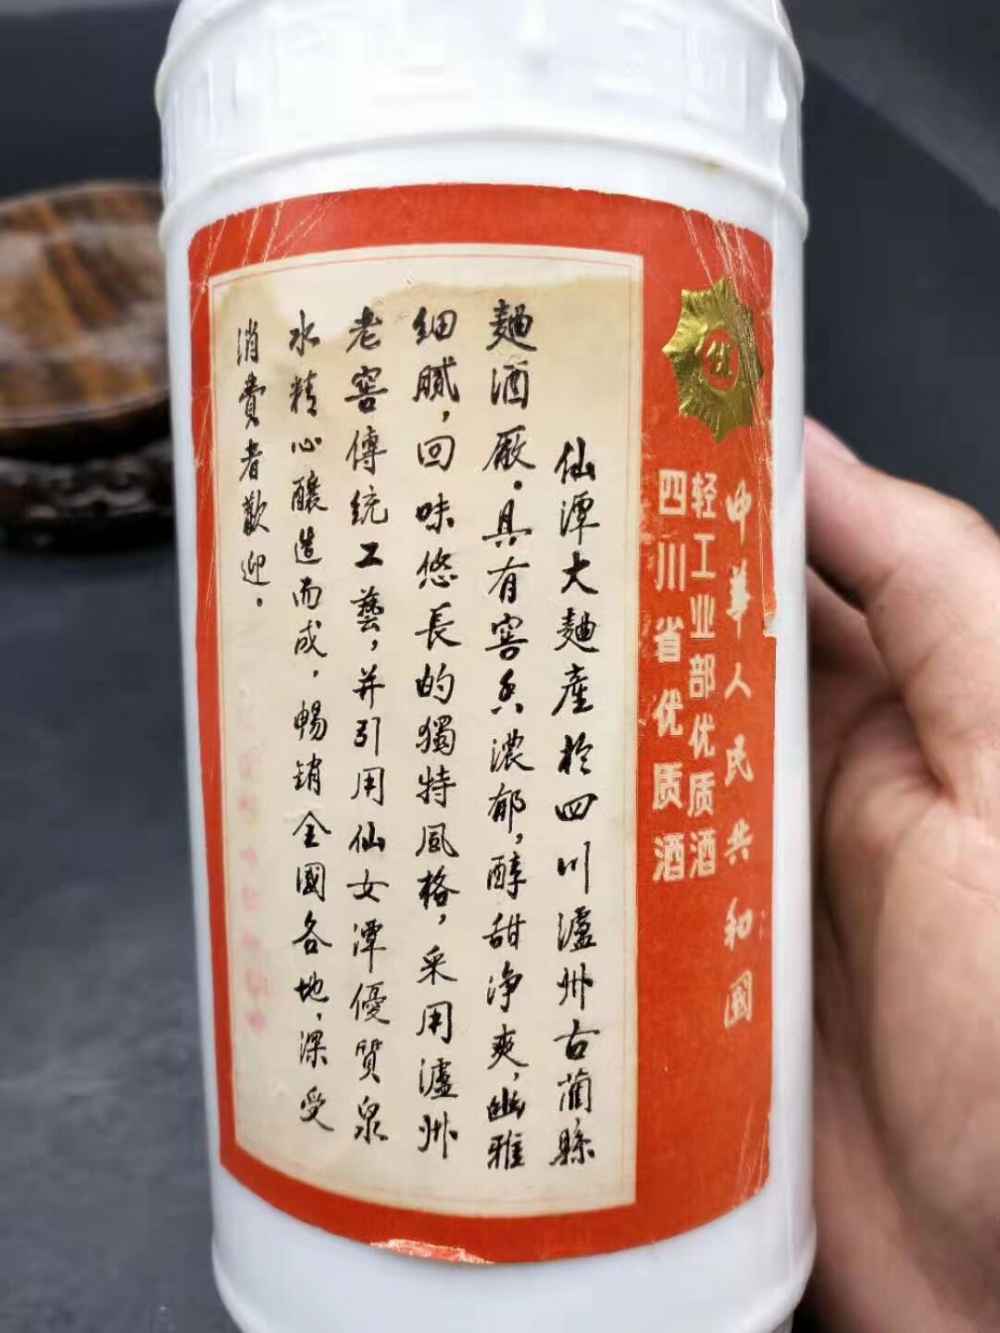 优
中華人民共和國
轻工业部优质酒
四川省优质酒
仙潭大麯産於四川瀘州古藺縣
麯酒廠。具有窖香濃郁,醇甜净爽,幽雅
细腻,回味悠長的獨特風格,采用瀘州
老窖傳统工藝,并引用仙女潭優質泉
水精心釀造而成,暢銷全國各地,深受
消費者歡迎。